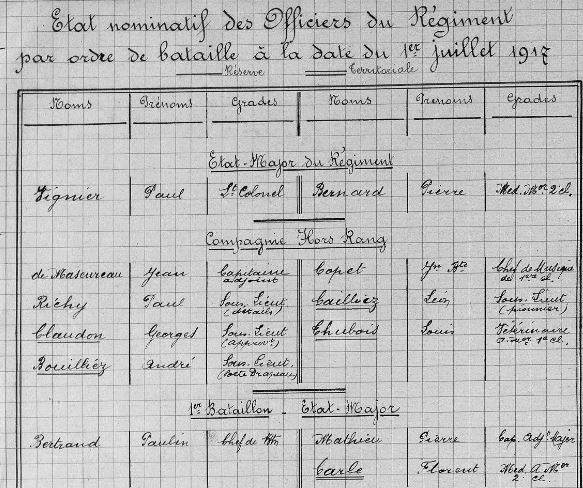 Etat nominatif des Officiers du Régiment
par ordre de bataille à la date du 1er juillet 1917
Réserve Territoriale
Noms Prénoms Grades Noms Prenoms Grades
Etat-Major du Régiment
Vignier Paul Lt Colonel Bernard Pierre Med. Mor 2e cl.
Compagnie Hors Rang
de Masureau Jean Capitaine adjoint Copet Chef de Musique de 1ère cl.
Richy Paul Sous. Lieut (détails) Cailliez Léon Sous. Lieut (pionnier)
Claudon Georges Sous. Lieut (approvt.) Thubois Louis Vétérinaire 1e cl.
Bouilliez André Sous. Lieut. (Porte Drapeau)
1er Bataillon - Etat-Major
Bertrand Paulin Chef de Btn Mathieu Pierre Cap. Adjt Major
Carle Florent Med. A. Mor 2e cl.